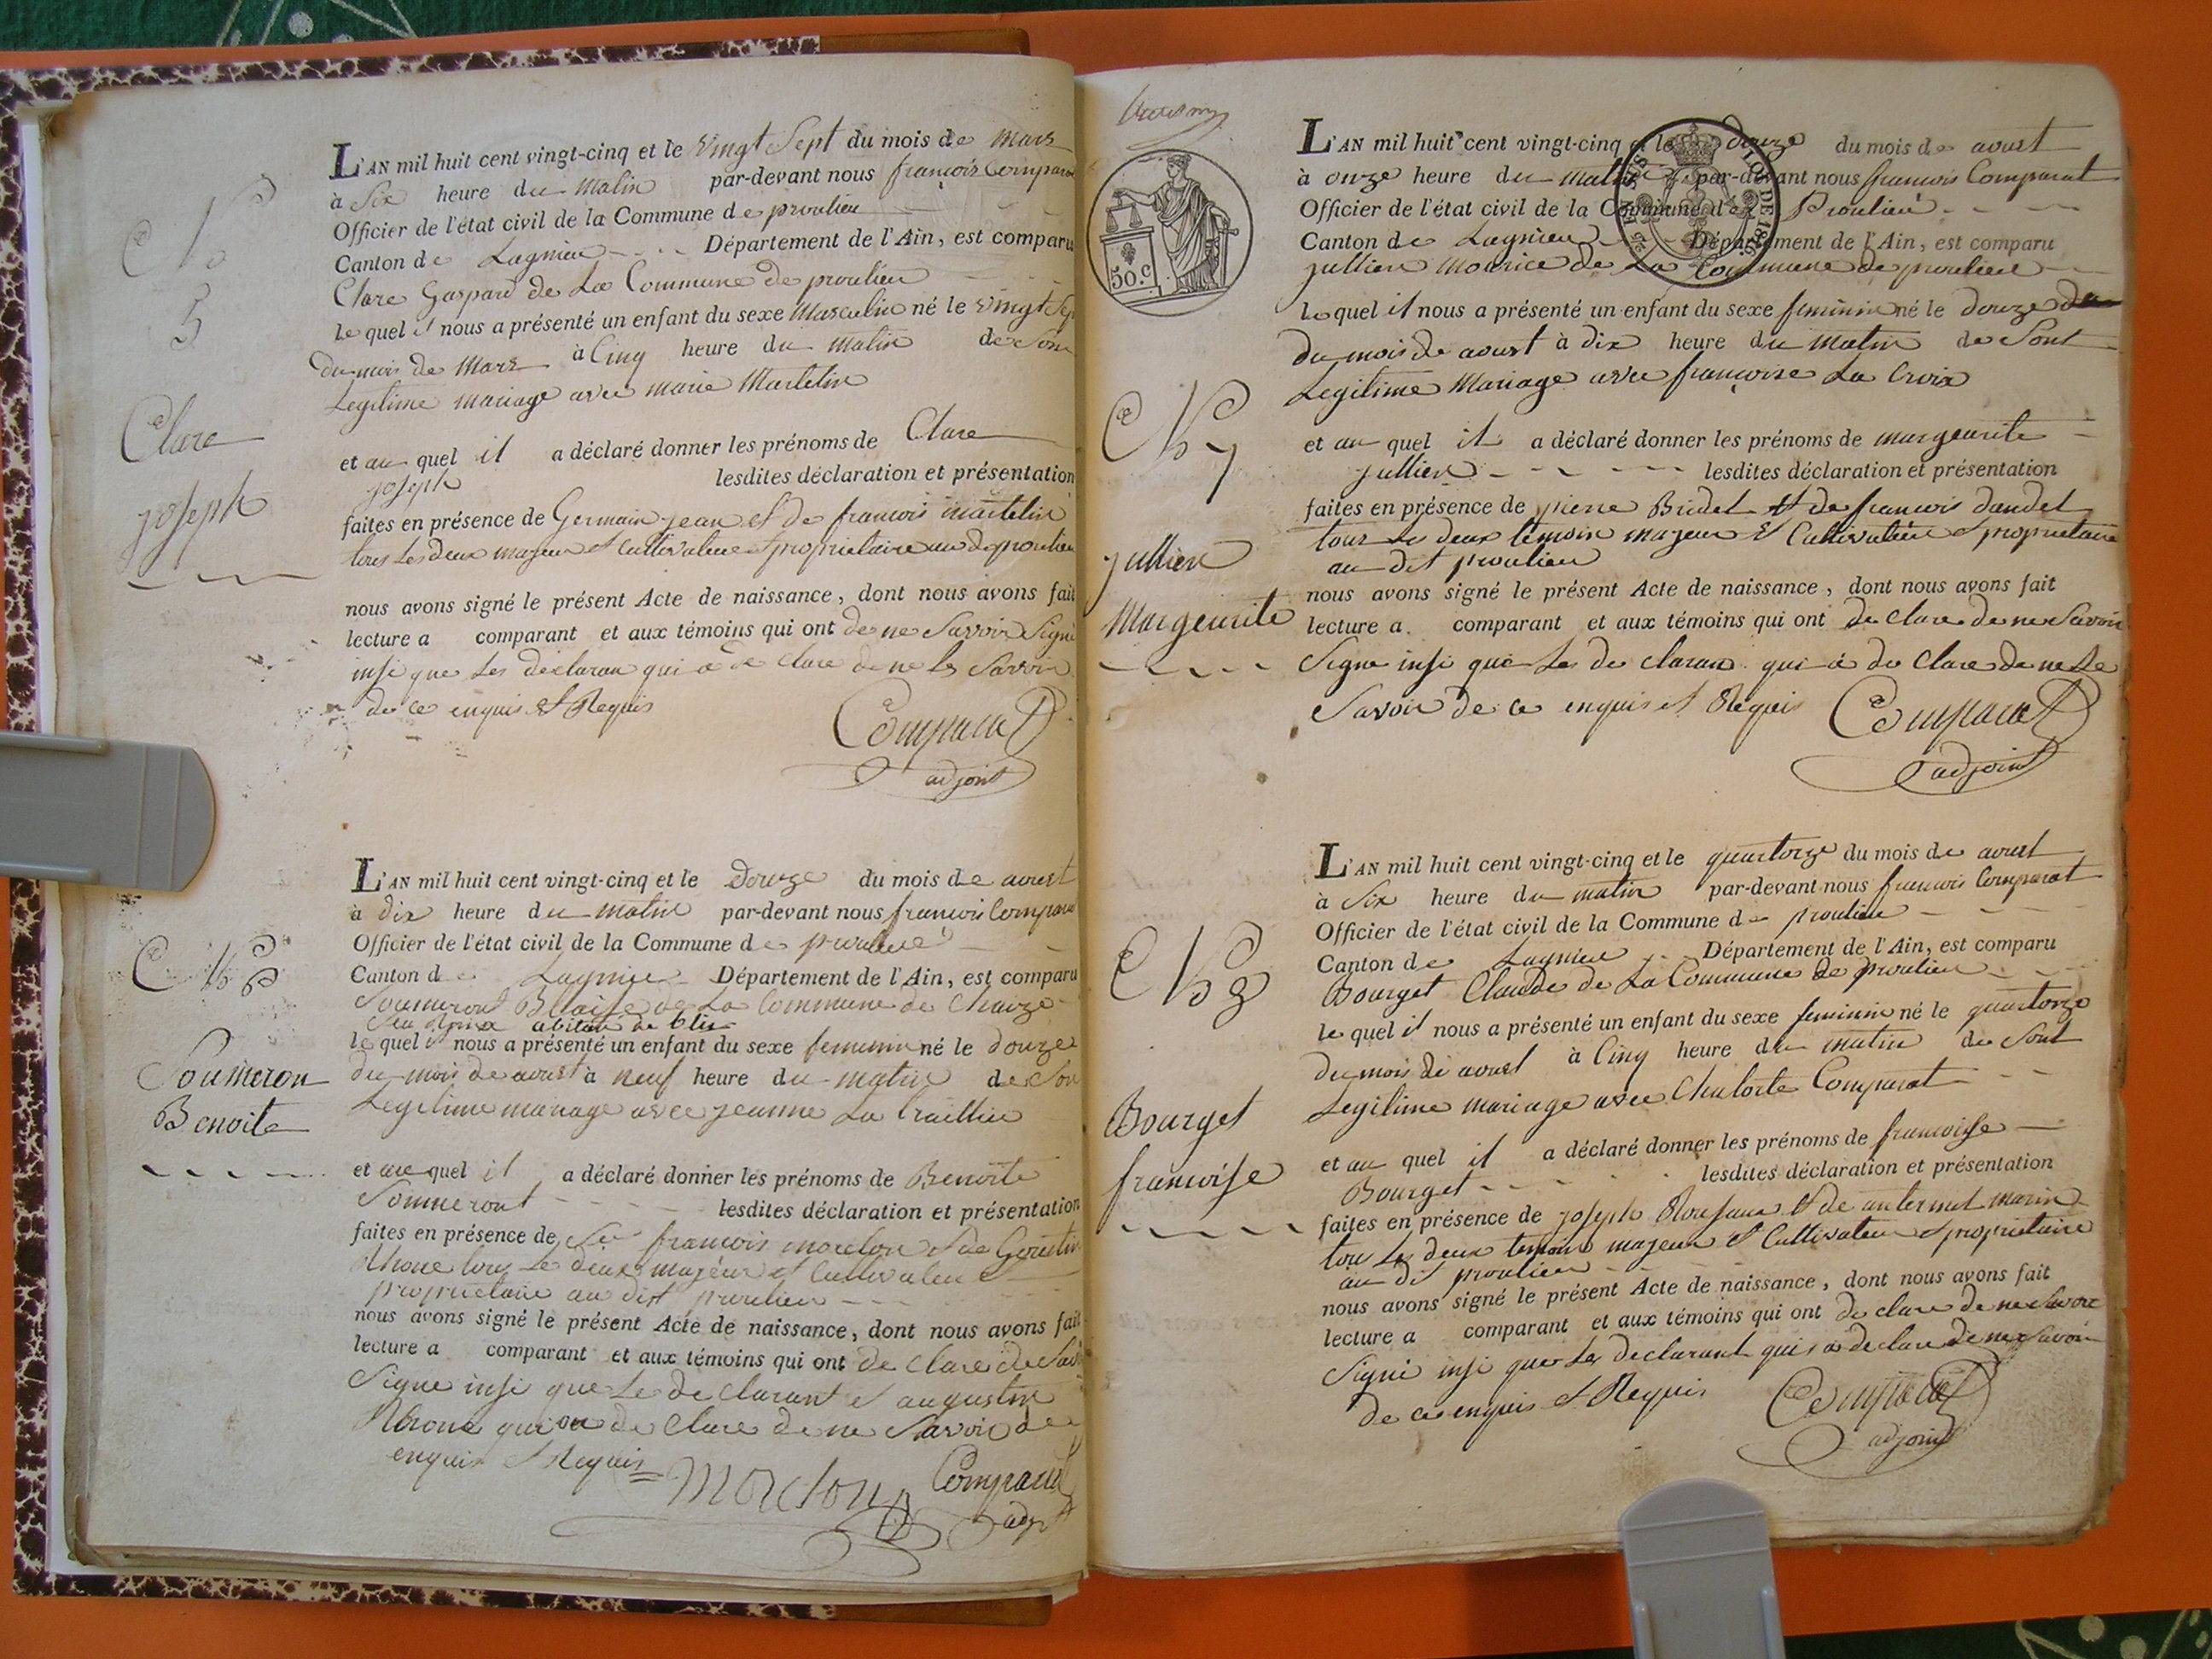 L'AN mil huit cent vingt-cinq et le vingt Sept du mois de mars
à Six heure du matin par-devant nous françois Comparat
Officier de l'état civil de la Commune de proulieu
Canton de Lagnieu Département de l'Ain, est comparu
Clare Gaspard de La Commune de proulieu
le quel il nous a présenté un enfant du sexe Masculin né le vingt Sep
du mois de Mars à Cinq heure du matin de Son
Legitime mariage avec marie Martelin
et au quel il a déclaré donner les prénoms de Clare
joseph lesdites déclaration et présentation
faites en présence de Germain jean et de francois martelin
tous Les deux majeur et Cultivateur et proprietaire au d proulieu
nous avons signé le présent Acte de naissance, dont nous avons fait
lecture a comparant et aux témoins qui ont de ne Savoir Signé
insi que Les declaran qui a de Clare de ne le Savoir
de ce enquis et Requis
Comparat
adjoint
N
5
Clare
joseph
L'AN mil huit cent vingt-cinq et le Douze du mois de aoust
à dix heure du matin par-devant nous francois Compara
Officier de l'état civil de la Commune de proulieu
Canton de Lagnieu Département de l'Ain, est comparu
Soumeront Blaise de La Commune de
abitan de
le quel il nous a présenté un enfant du sexe feminin né le douze
du mois de aoust à neuf heure du matin de Son
Legitime mariage avec jeanne La
et au quel il a déclaré donner les prénoms de Benoite
Soumeront lesdites déclaration et présentation
faites en présence de Sr francois morelon
tous Le deux majeur et Cultivateur
proprietaire au dit proulieu
nous avons signé le présent Acte de naissance, dont nous avons fait
lecture a comparant et aux témoins qui ont de Clare de
Signe insi que Le de Clarant et augustin
qui on de Clare de ne Savoir de
enquis et Requis
Morelon Comparat
adjt
N 6
Soumeron
Benoite
50.c
L'AN mil huit cent vingt-cinq et le douze du mois de aoust
à onze heure du matin par-devant nous francois Comparat
Officier de l'état civil de la Commune de Proulieu
Canton de Lagnieu Département de l'Ain, est comparu
jullien Mourice de La Commune de proulieu
le quel il nous a présenté un enfant du sexe feminin né le douze
du mois de aoust à dix heure du matin de Sont
Legitime Mariage avec françoise La Croix
et au quel il a déclaré donner les prénoms de margeurite
jullien lesdites déclaration et présentation
faites en présence de pierre Bridet et de francois dandel
tous Les deux temoin majeur et Cultivateur et proprietaire
au dit proulieu
nous avons signé le présent Acte de naissance, dont nous avons fait
lecture a. comparant et aux témoins qui ont de Clare de ne Savoir
Signe insi que Les de claran qui a de Clare de ne Le
Savoir de ce enquis et Requis
Comparat
adjoint
N 7
jullien
Margeurite
L'AN mil huit cent vingt-cinq et le quartorze du mois de aoust
à Six heure du matin par-devant nous francois Comparat
Officier de l'état civil de la Commune de proulieu
Canton de Lagnieu Département de l'Ain, est comparu
Bourget Claude de La Commune de proulieu
le quel il nous a présenté un enfant du sexe feminin né le quartorze
du mois de aoust à Cinq heure du matin de Sont
Legitime mariage avec Chalorte Comparat
et au quel il a déclaré donner les prénoms de francoise
Bourget lesdites déclaration et présentation
faites en présence de joseph et de antermet marin
tous Les deux temoins majeur et Cultivateur et proprietaire
au dit proulieu
nous avons signé le présent Acte de naissance, dont nous avons fait
lecture a comparant et aux témoins qui ont de clare de ne Savoir
Signe insi que Les declarant qui a de clare de ne Savoir
de ce enquis et Requis
Comparat
adjoint
N 8
Bourget
francoise